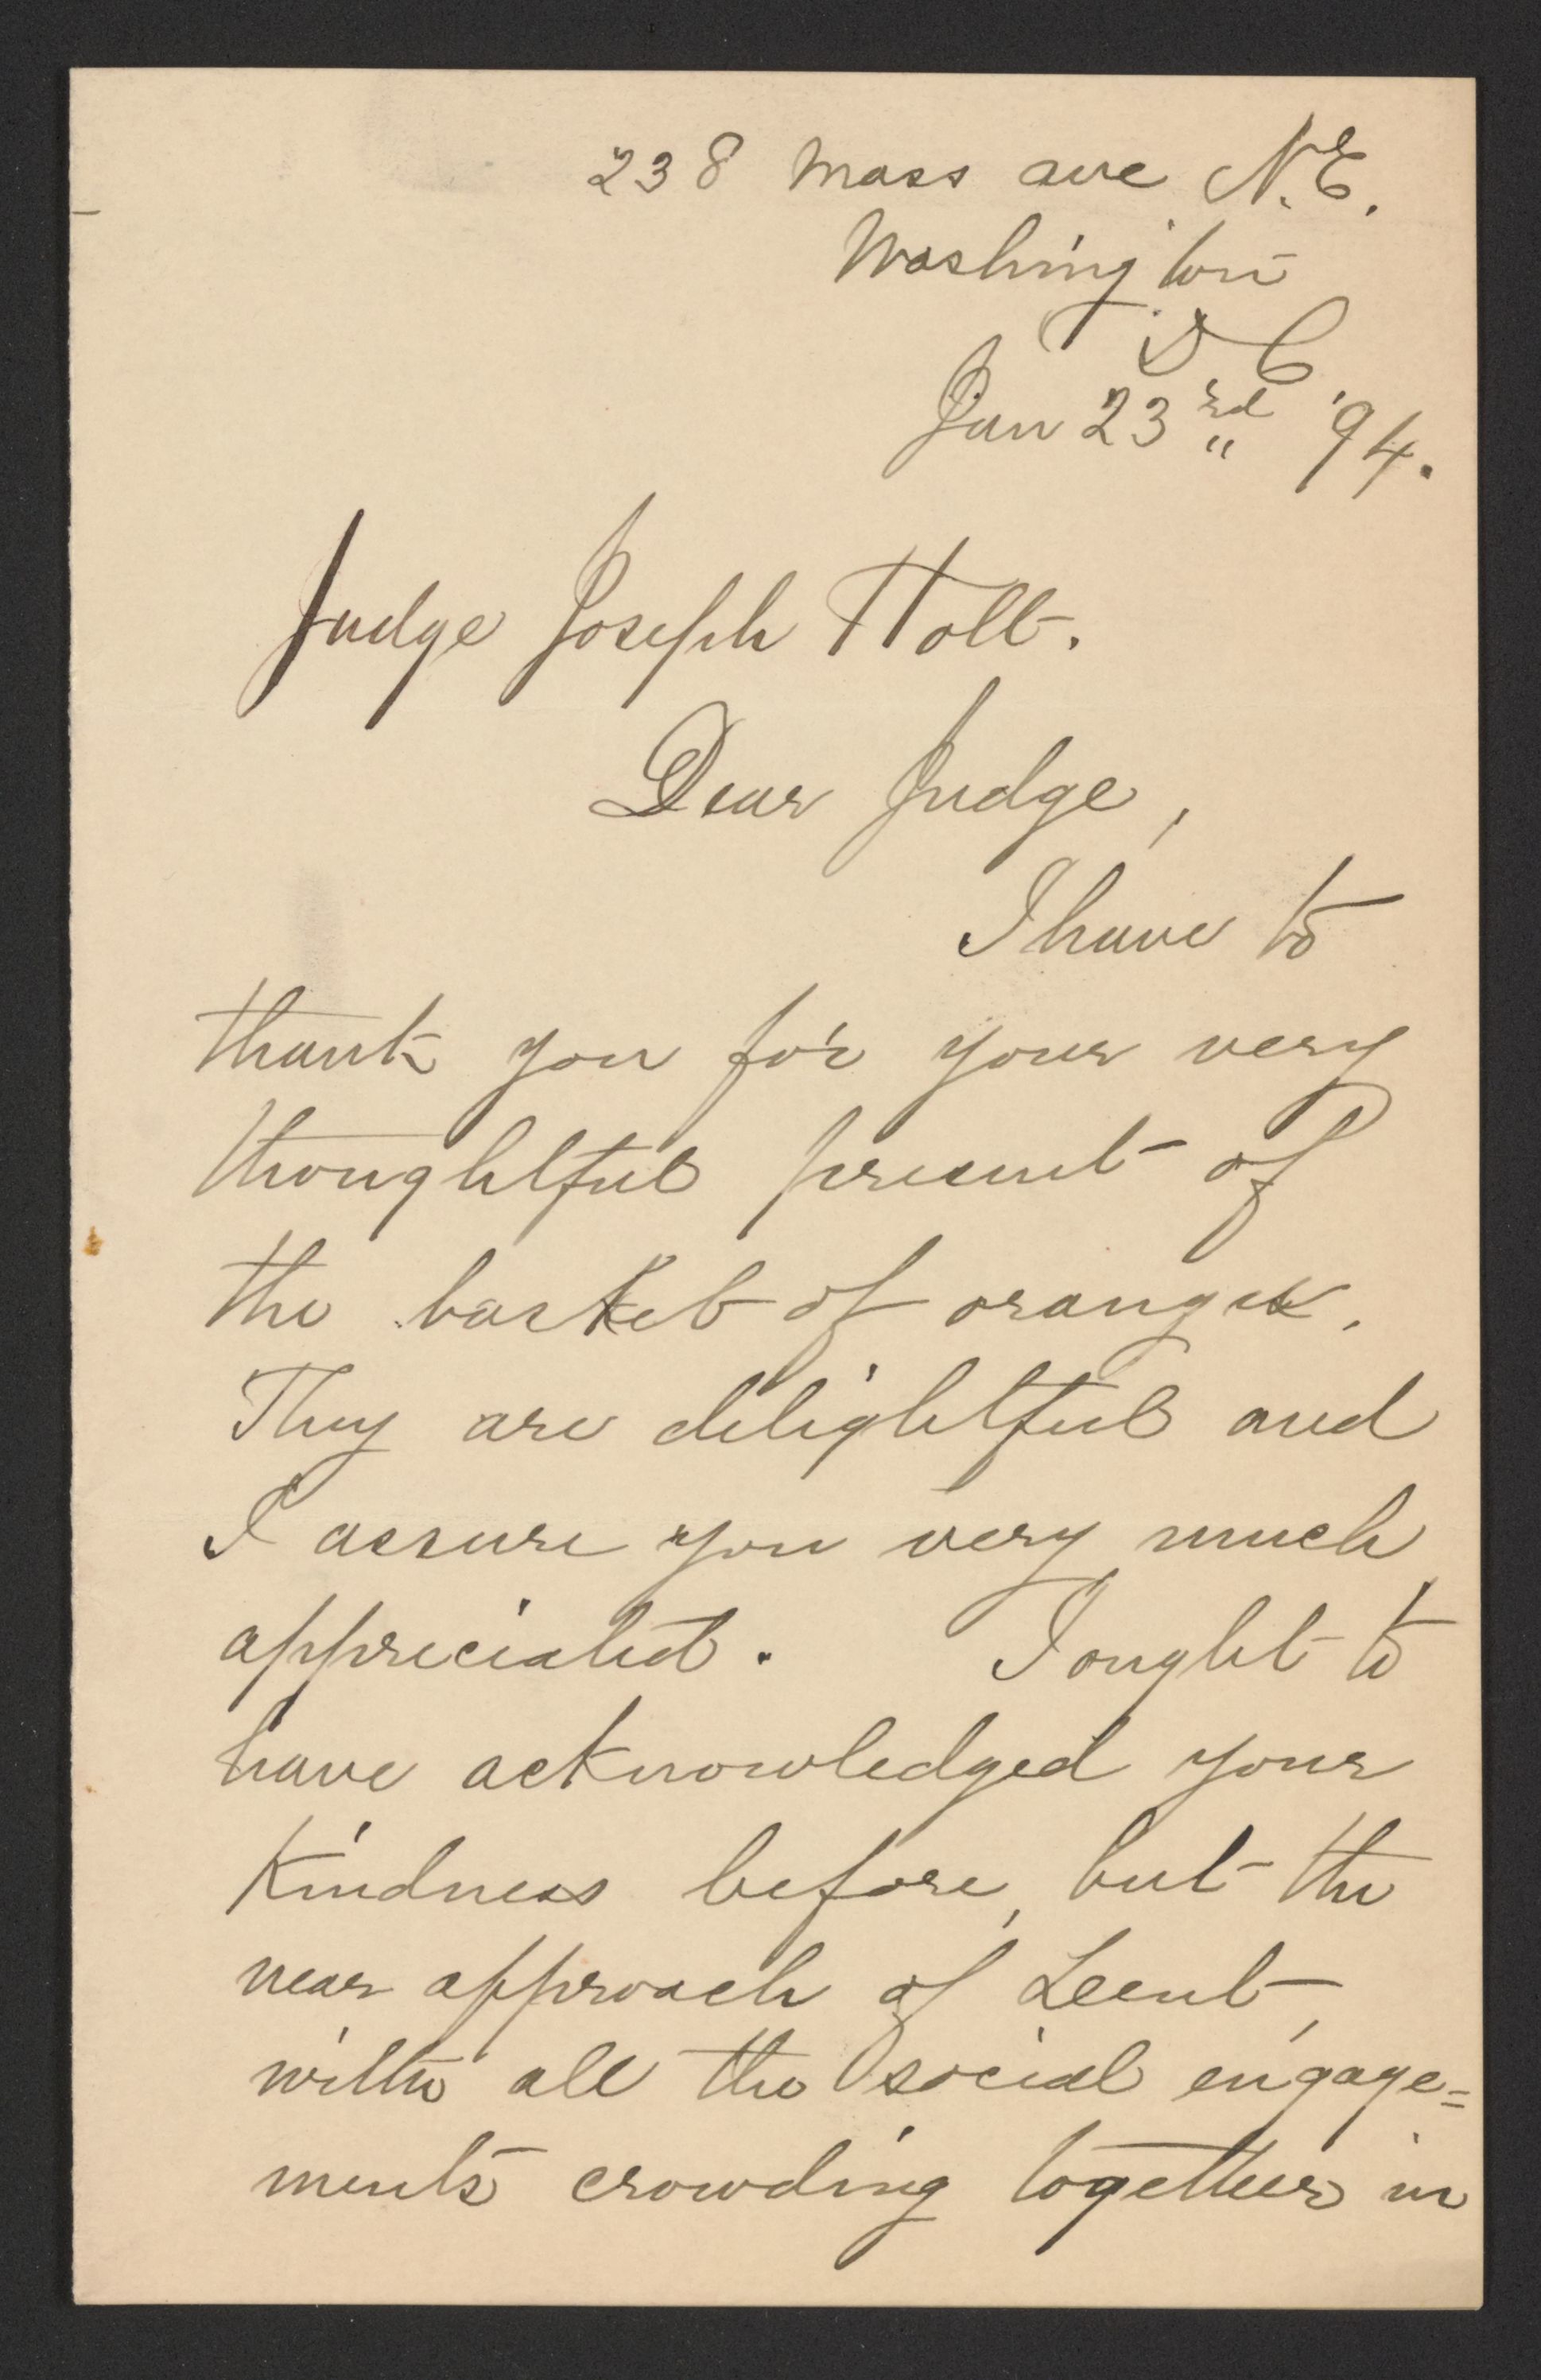 238 Mass ave N.E.
Washington
D C
Jan 23rd '94.
Judge Joseph Holt.
Dear Judge,
I have to
thank you for your very
thoughtful present of
the basket of oranges.
They are delightful and
I assure you very much
appreciated. I ought to
have acknowledged your
kindness before, but the
near approach of Leent,
with all the social engage=
ments crowding together in